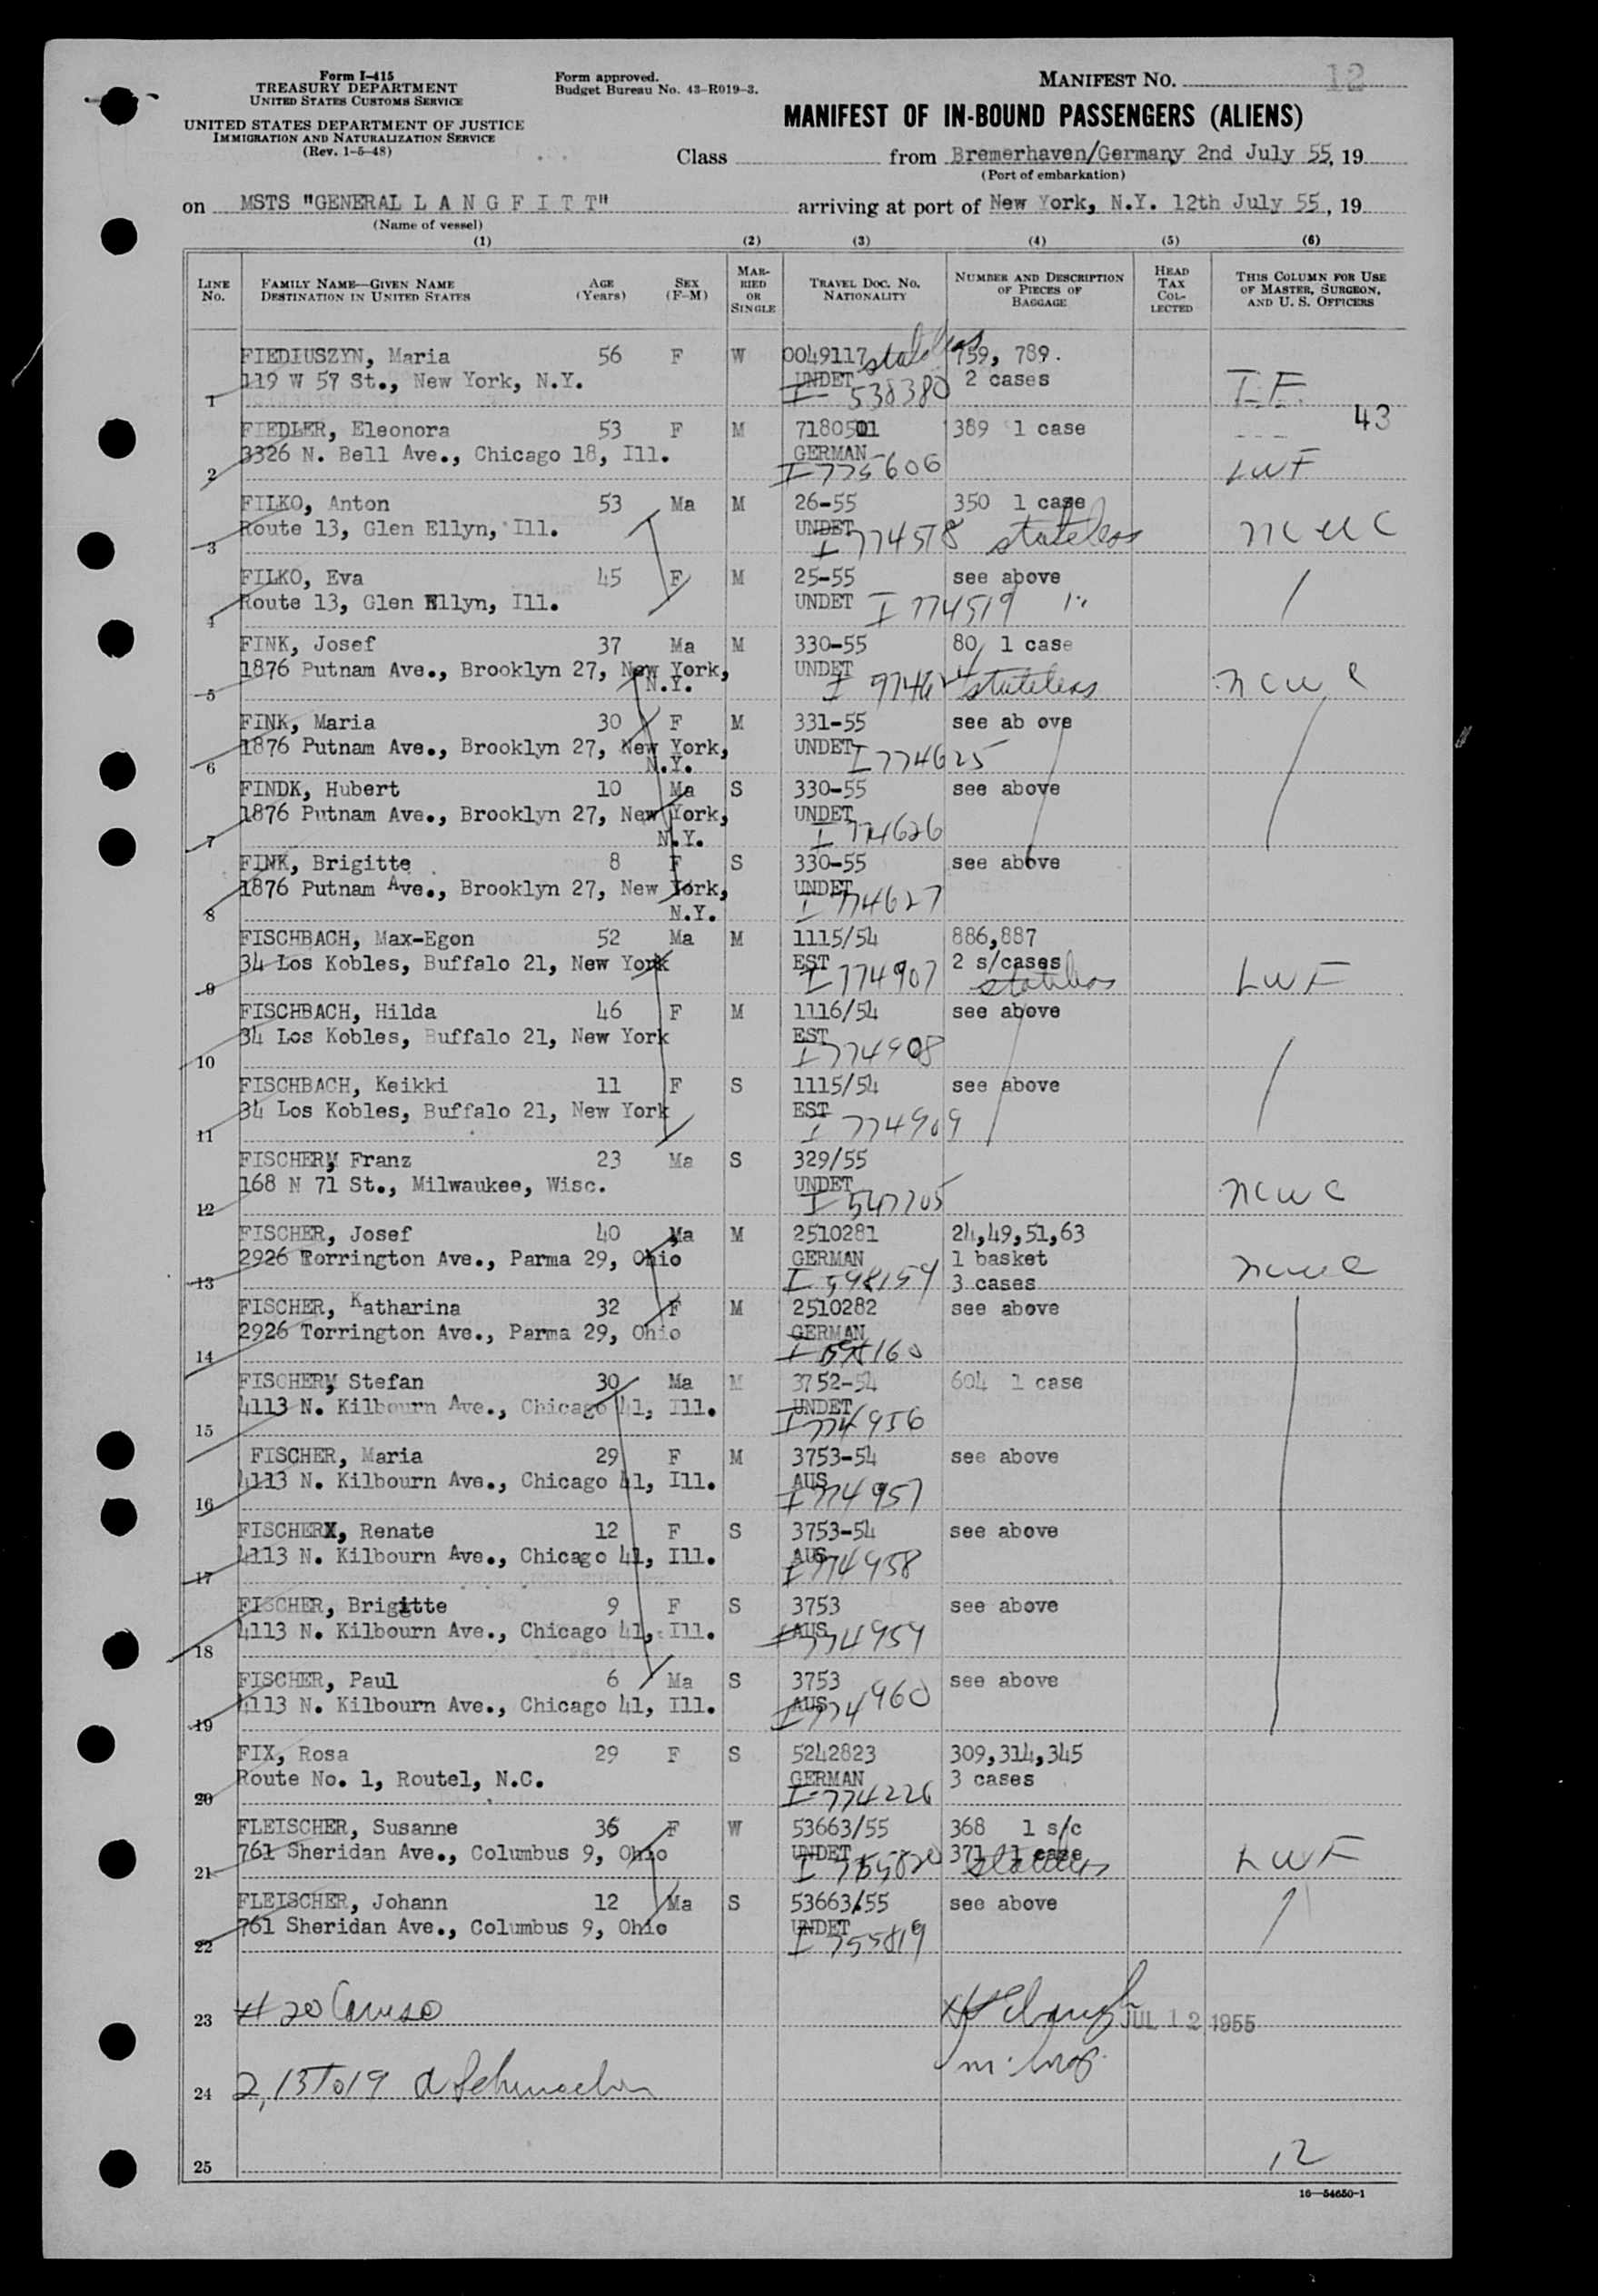 Form I-415
TREASURY DEPARTMENT
UNITED STATES CUSTOMS SERVICE
UNITED STATES DEPARTMENT OF JUSTICE
IMMIGRATION AND NATURALIZATION SERVICE
(Rev. 1-5-48)
Form approved.
Budget Bureau No. 43-R019-3.
MANIFEST NO. 12
MANIFEST OF IN-BOUND PASSENGERS (ALIENS)
Class from Bremerhaven/Germany 2nd July 55, 19
(Port of embarkation)
on MSTS "GENERAL L A N G F I T T" arriving at port of New York, N.Y. 12th July 55, 19
(Name of vessel)
(1) (2) (3) (4) (5) (6)
LINE NO. FAMILY NAME—GIVEN NAME DESTINATION IN UNITED STATES AGE (Years) SEX (F-M) MARRIED OR SINGLE TRAVEL DOC. NO. NATIONALITY NUMBER AND DESCRIPTION OF PIECES OF BAGGAGE HEAD TAX COLLECTED THIS COLUMN FOR USE OF MASTER, SURGEON, AND U. S. OFFICERS
FIEDIUSZYN, Maria 56 F W 0049117 stateless 759, 789.
119 W 57 St., New York, N.Y. UNDET 2 cases
1 I- 538380 I.F.
43
FIEDLER, Eleonora 53 F M 7180501 389 1 case
3326 N. Bell Ave., Chicago 18, Ill. GERMAN
2 I-775606 LWF
FILKO, Anton 53 Ma M 26-55 350 1 case
Route 13, Glen Ellyn, Ill. UNDET
3 I 774518 stateless NCWC
FILKO, Eva 45 F M 25-55 see above
Route 13, Glen Ellyn, Ill. UNDET I 774519
4
FINK, Josef 37 Ma M 330-55 80, 1 case
1876 Putnam Ave., Brooklyn 27, New York, UNDET
5 N.Y. stateless NCWC
FINK, Maria 30 F M 331-55 see ab ove
1876 Putnam Ave., Brooklyn 27, New York, UNDET
6 N.Y. I774625
FINDK, Hubert 10 Ma S 330-55 see above
1876 Putnam Ave., Brooklyn 27, New York, UNDET
7 N.Y. I 774626
FINK, Brigitte 8 F S 330-55 see above
1876 Putnam Ave., Brooklyn 27, New York, UNDET
8 N.Y. I 774627
FISCHBACH, Max-Egon 52 Ma M 1115/54 886,887
34 Los Kobles, Buffalo 21, New York EST 2 s/cases
9 I 774907 stateless LWF
FISCHBACH, Hilda 46 F M 1116/54 see above
34 Los Kobles, Buffalo 21, New York EST
10 I 774908
FISCHBACH, Keikki 11 F S 1115/54 see above
34 Los Kobles, Buffalo 21, New York EST
11 I 774909
FISCHER, Franz 23 Ma S 329/55
168 N 71 St., Milwaukee, Wisc. UNDET
12 I 547705 NCWC
FISCHER, Josef 40 Ma M 2510281 24,49,51,63
2926 Torrington Ave., Parma 29, Ohio GERMAN 1 basket
13 I 598159 3 cases NCWC
FISCHER, Katharina 32 F M 2510282 see above
2926 Torrington Ave., Parma 29, Ohio GERMAN
14 I 598160
FISCHER, Stefan 30 Ma M 3752-54 604 1 case
4113 N. Kilbourn Ave., Chicago 41, Ill. UNDET
15 I774956
FISCHER, Maria 29 F M 3753-54 see above
4113 N. Kilbourn Ave., Chicago 41, Ill. AUS
16 I774957
FISCHER, Renate 12 F S 3753-54 see above
4113 N. Kilbourn Ave., Chicago 41, Ill. AUS
17 I774958
FISCHER, Brigitte 9 F S 3753 see above
4113 N. Kilbourn Ave., Chicago 41, Ill. AUS
18 I774959
FISCHER, Paul 6 Ma S 3753 see above
4113 N. Kilbourn Ave., Chicago 41, Ill. AUS
19 I774960
FIX, Rosa 29 F S 5242823 309,314,345
Route No. 1, Routel, N.C. GERMAN 3 cases
20 I-774226
FLEISCHER, Susanne 36 F W 53663/55 368 1 s/c
761 Sheridan Ave., Columbus 9, Ohio UNDET 371 1 case
21 stateless LWF
FLEISCHER, Johann 12 Ma S 53663/55 see above
761 Sheridan Ave., Columbus 9, Ohio UNDET
22 I 755819
23 # 20 Caruso JUL 12 1955
24 2, 13 to 19
25 12
16—54650-1